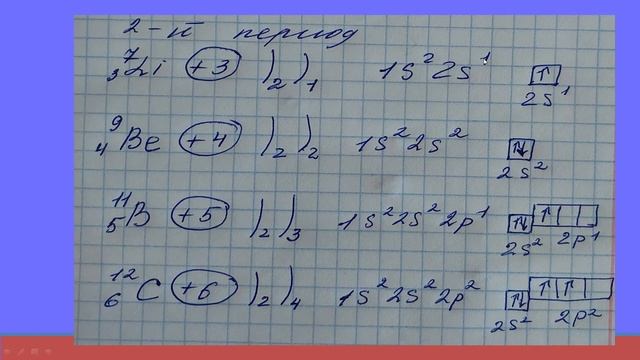 2-й период
⁷₃Li +3 )₂ )₁ 1S² 2S¹ ↑ 2S¹
⁹₄Be +4 )₂ )₂ 1S² 2S² ↑↓ 2S²
¹¹₅B +5 )₂ )₃ 1S² 2S² 2p¹ ↑↓ ↑ 2S² 2p¹
¹²₆C +6 )₂ )₄ 1S² 2S² 2p² ↑↓ ↑ ↑ 2S² 2p²